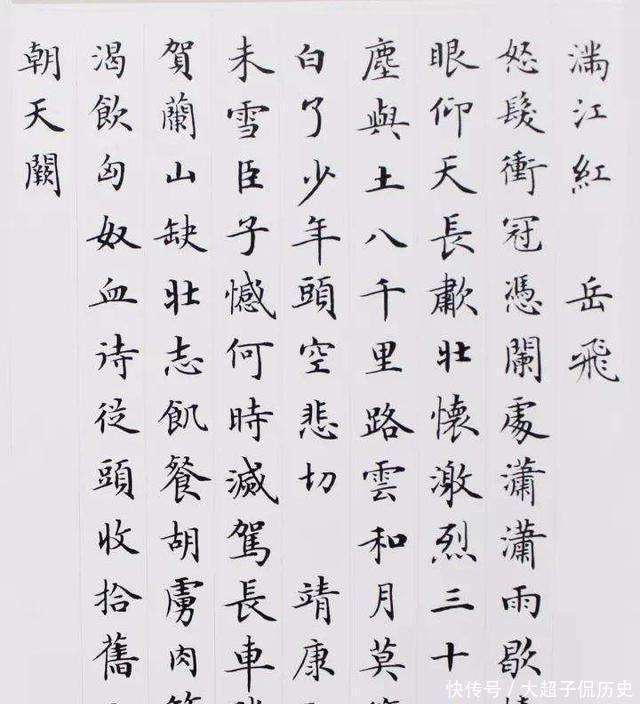 滿江紅 岳飛
怒髮衝冠憑闌處瀟瀟雨歇
眼仰天長歗壯懷激烈三十
塵與土八千里路雲和月莫
白了少年頭空悲切 靖康
未雪臣子憾何時滅駕長車
賀蘭山缺壯志飢餐胡虜肉
渴飲匈奴血待從頭收拾舊
朝天闕
快传号／大超子侃历史